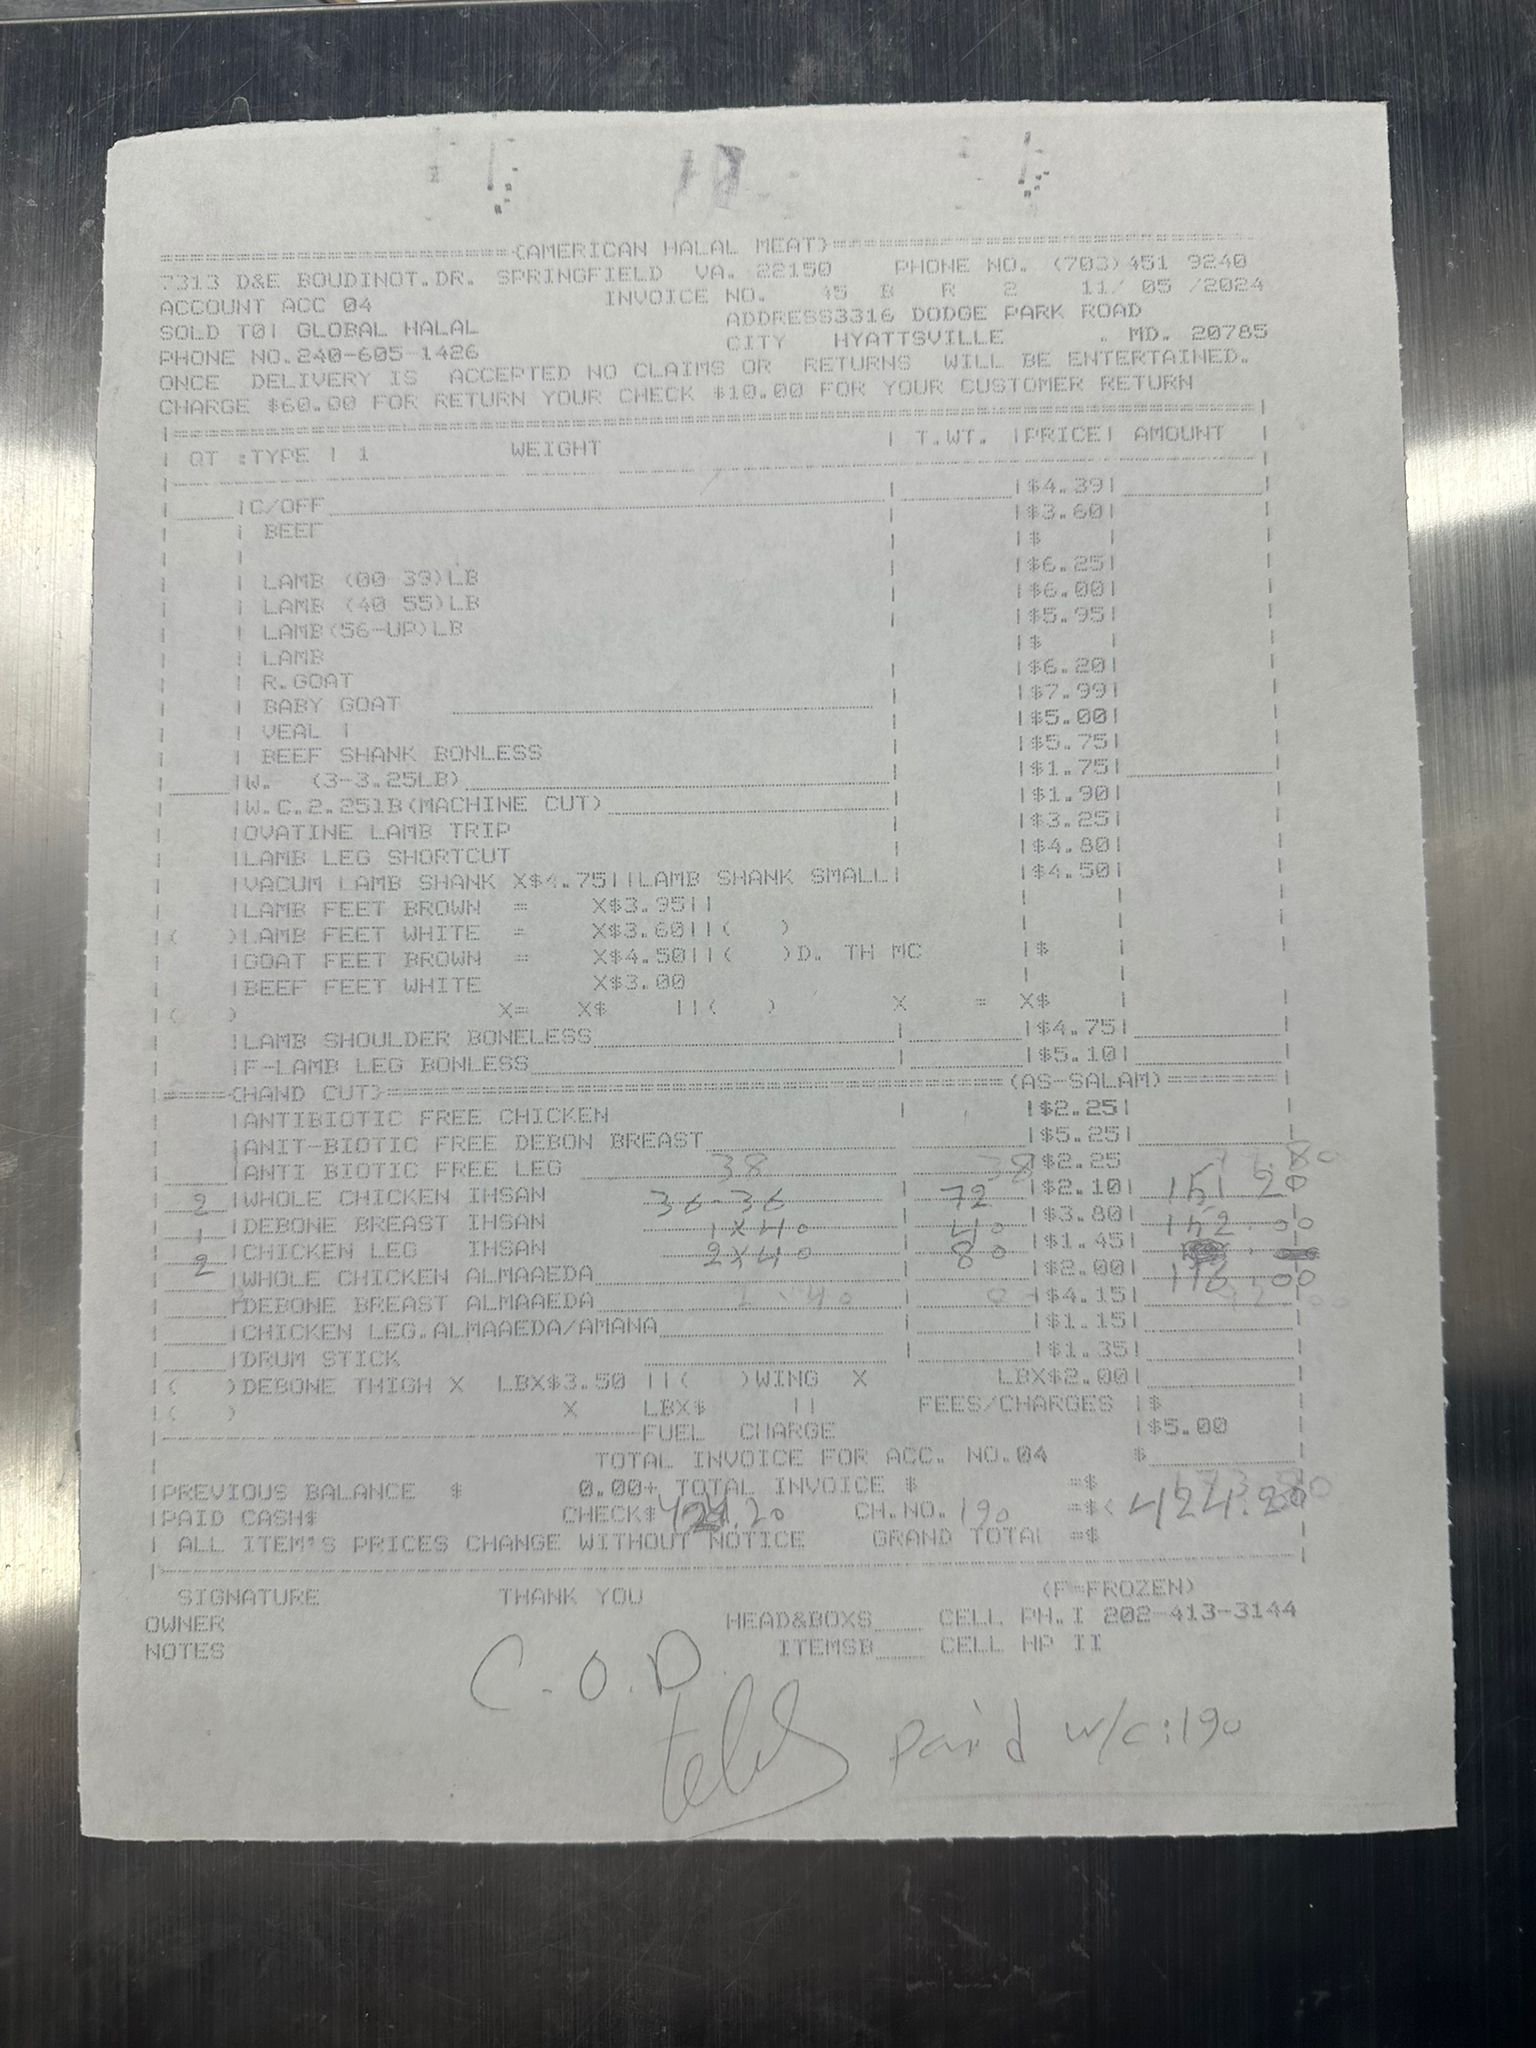 (AMERICAN HALAL MEAT)
7313 D&E BOUDINOT.DR. SPRINGFIELD VA. 22150 PHONE NO. (703)451 9240
ACCOUNT ACC 04 INVOICE NO. 45 B R 2 11/ 05 /2024
SOLD TO| GLOBAL HALAL ADDRESS3316 DODGE PARK ROAD
PHONE NO.240-605-1426 CITY HYATTSVILLE . MD. 20785
ONCE DELIVERY IS ACCEPTED NO CLAIMS OR RETURNS WILL BE ENTERTAINED.
CHARGE $60.00 FOR RETURN YOUR CHECK $10.00 FOR YOUR CUSTOMER RETURN
QT :TYPE | 1 WEIGHT | T.WT. |PRICE| AMOUNT
|C/OFF |$4.39|
| BEEF |$3.60|
| |$ |
| LAMB (00-39)LB |$6.25|
| LAMB (40 55)LB |$6.00|
| LAMB(56-UP)LB |$5.95|
| LAMB |$ |
| R.GOAT |$6.20|
| BABY GOAT |$7.99|
| VEAL | |$5.00|
| BEEF SHANK BONLESS |$5.75|
|W. (3-3.25LB) |$1.75|
|W.C.2.251B(MACHINE CUT) |$1.90|
|OVATINE LAMB TRIP |$3.25|
|LAMB LEG SHORTCUT |$4.80|
|VACUM LAMB SHANK X$4.75||LAMB SHANK SMALL| |$4.50|
|LAMB FEET BROWN = X$3.95||
|( )LAMB FEET WHITE = X$3.60||( )
|GOAT FEET BROWN = X$4.50||( )D. TH MC |$ |
|BEEF FEET WHITE X$3.00
|( ) X= X$ ||( ) X = X$ |
|LAMB SHOULDER BONELESS |$4.75|
|F-LAMB LEG BONLESS |$5.10|
(HAND CUT) (AS-SALAM)
|ANTIBIOTIC FREE CHICKEN |$2.25|
|ANIT-BIOTIC FREE DEBON BREAST |$5.25|
|ANTI BIOTIC FREE LEG 38 38 |$2.25
2 |WHOLE CHICKEN IHSAN 36-36 72 |$2.10| 151 20
1 |DEBONE BREAST IHSAN 1x40 40 |$3.80| 152.00
2 |CHICKEN LEG IHSAN 2x40 80 |$1.45|
|WHOLE CHICKEN ALMAAEDA |$2.00| 116.00
|DEBONE BREAST ALMAAEDA |$4.15|
|CHICKEN LEG.ALMAAEDA/AMANA |$1.15|
|DRUM STICK |$1.35|
|( )DEBONE THIGH X LBX$3.50 ||( )WING X LBX$2.00|
|( ) X LBX$ || FEES/CHARGES |$
FUEL CHARGE |$5.00
TOTAL INVOICE FOR ACC. NO.04 $
|PREVIOUS BALANCE $ 0.00+ TOTAL INVOICE $ =$
|PAID CASH$ CHECK$424.20 CH.NO. 190 =$< 424.20
| ALL ITEM'S PRICES CHANGE WITHOUT NOTICE GRAND TOTAL =$
SIGNATURE THANK YOU (F=FROZEN)
OWNER HEAD&BOXS CELL PH.I 202-413-3144
NOTES ITEMSB CELL HP II
C.O.D.
Paid w/c:190